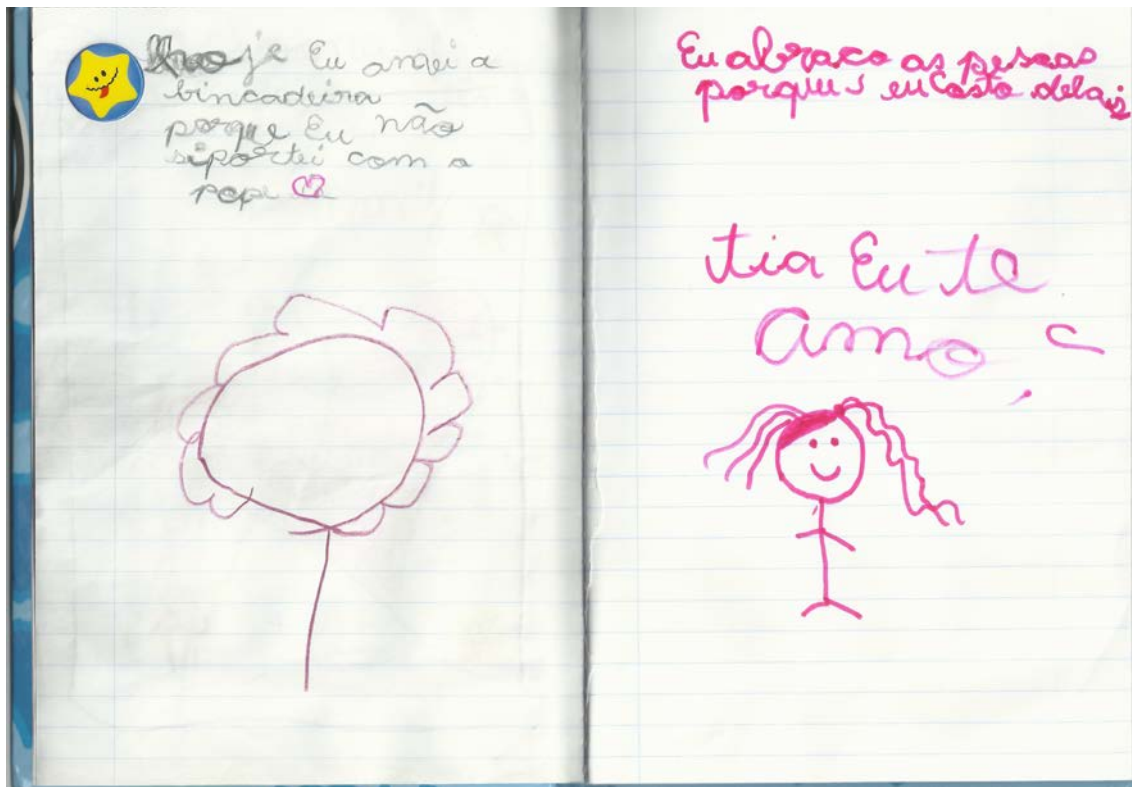 hoje Eu amei a
bincadeira
porque Eu não
siportei com a
Eu abraco as pesoas
porque eu Costo delas
tia Eu te
amo